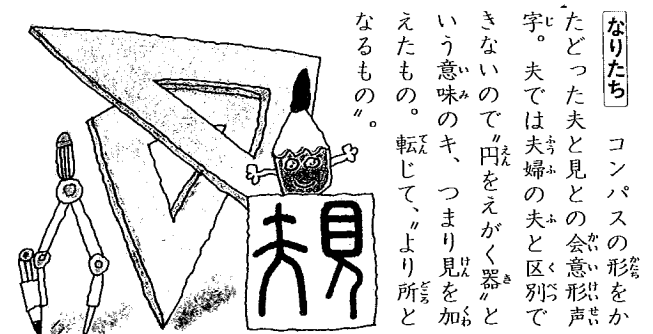 なりたち　コンパスの形をか
たどった夫と見との会意形声
字。夫では夫婦の夫と区別で
きないので〝円をえがく器〟と
いう意味のキ、つまり見を加
えたもの。転じて、〝より所と
なるもの〟。
規